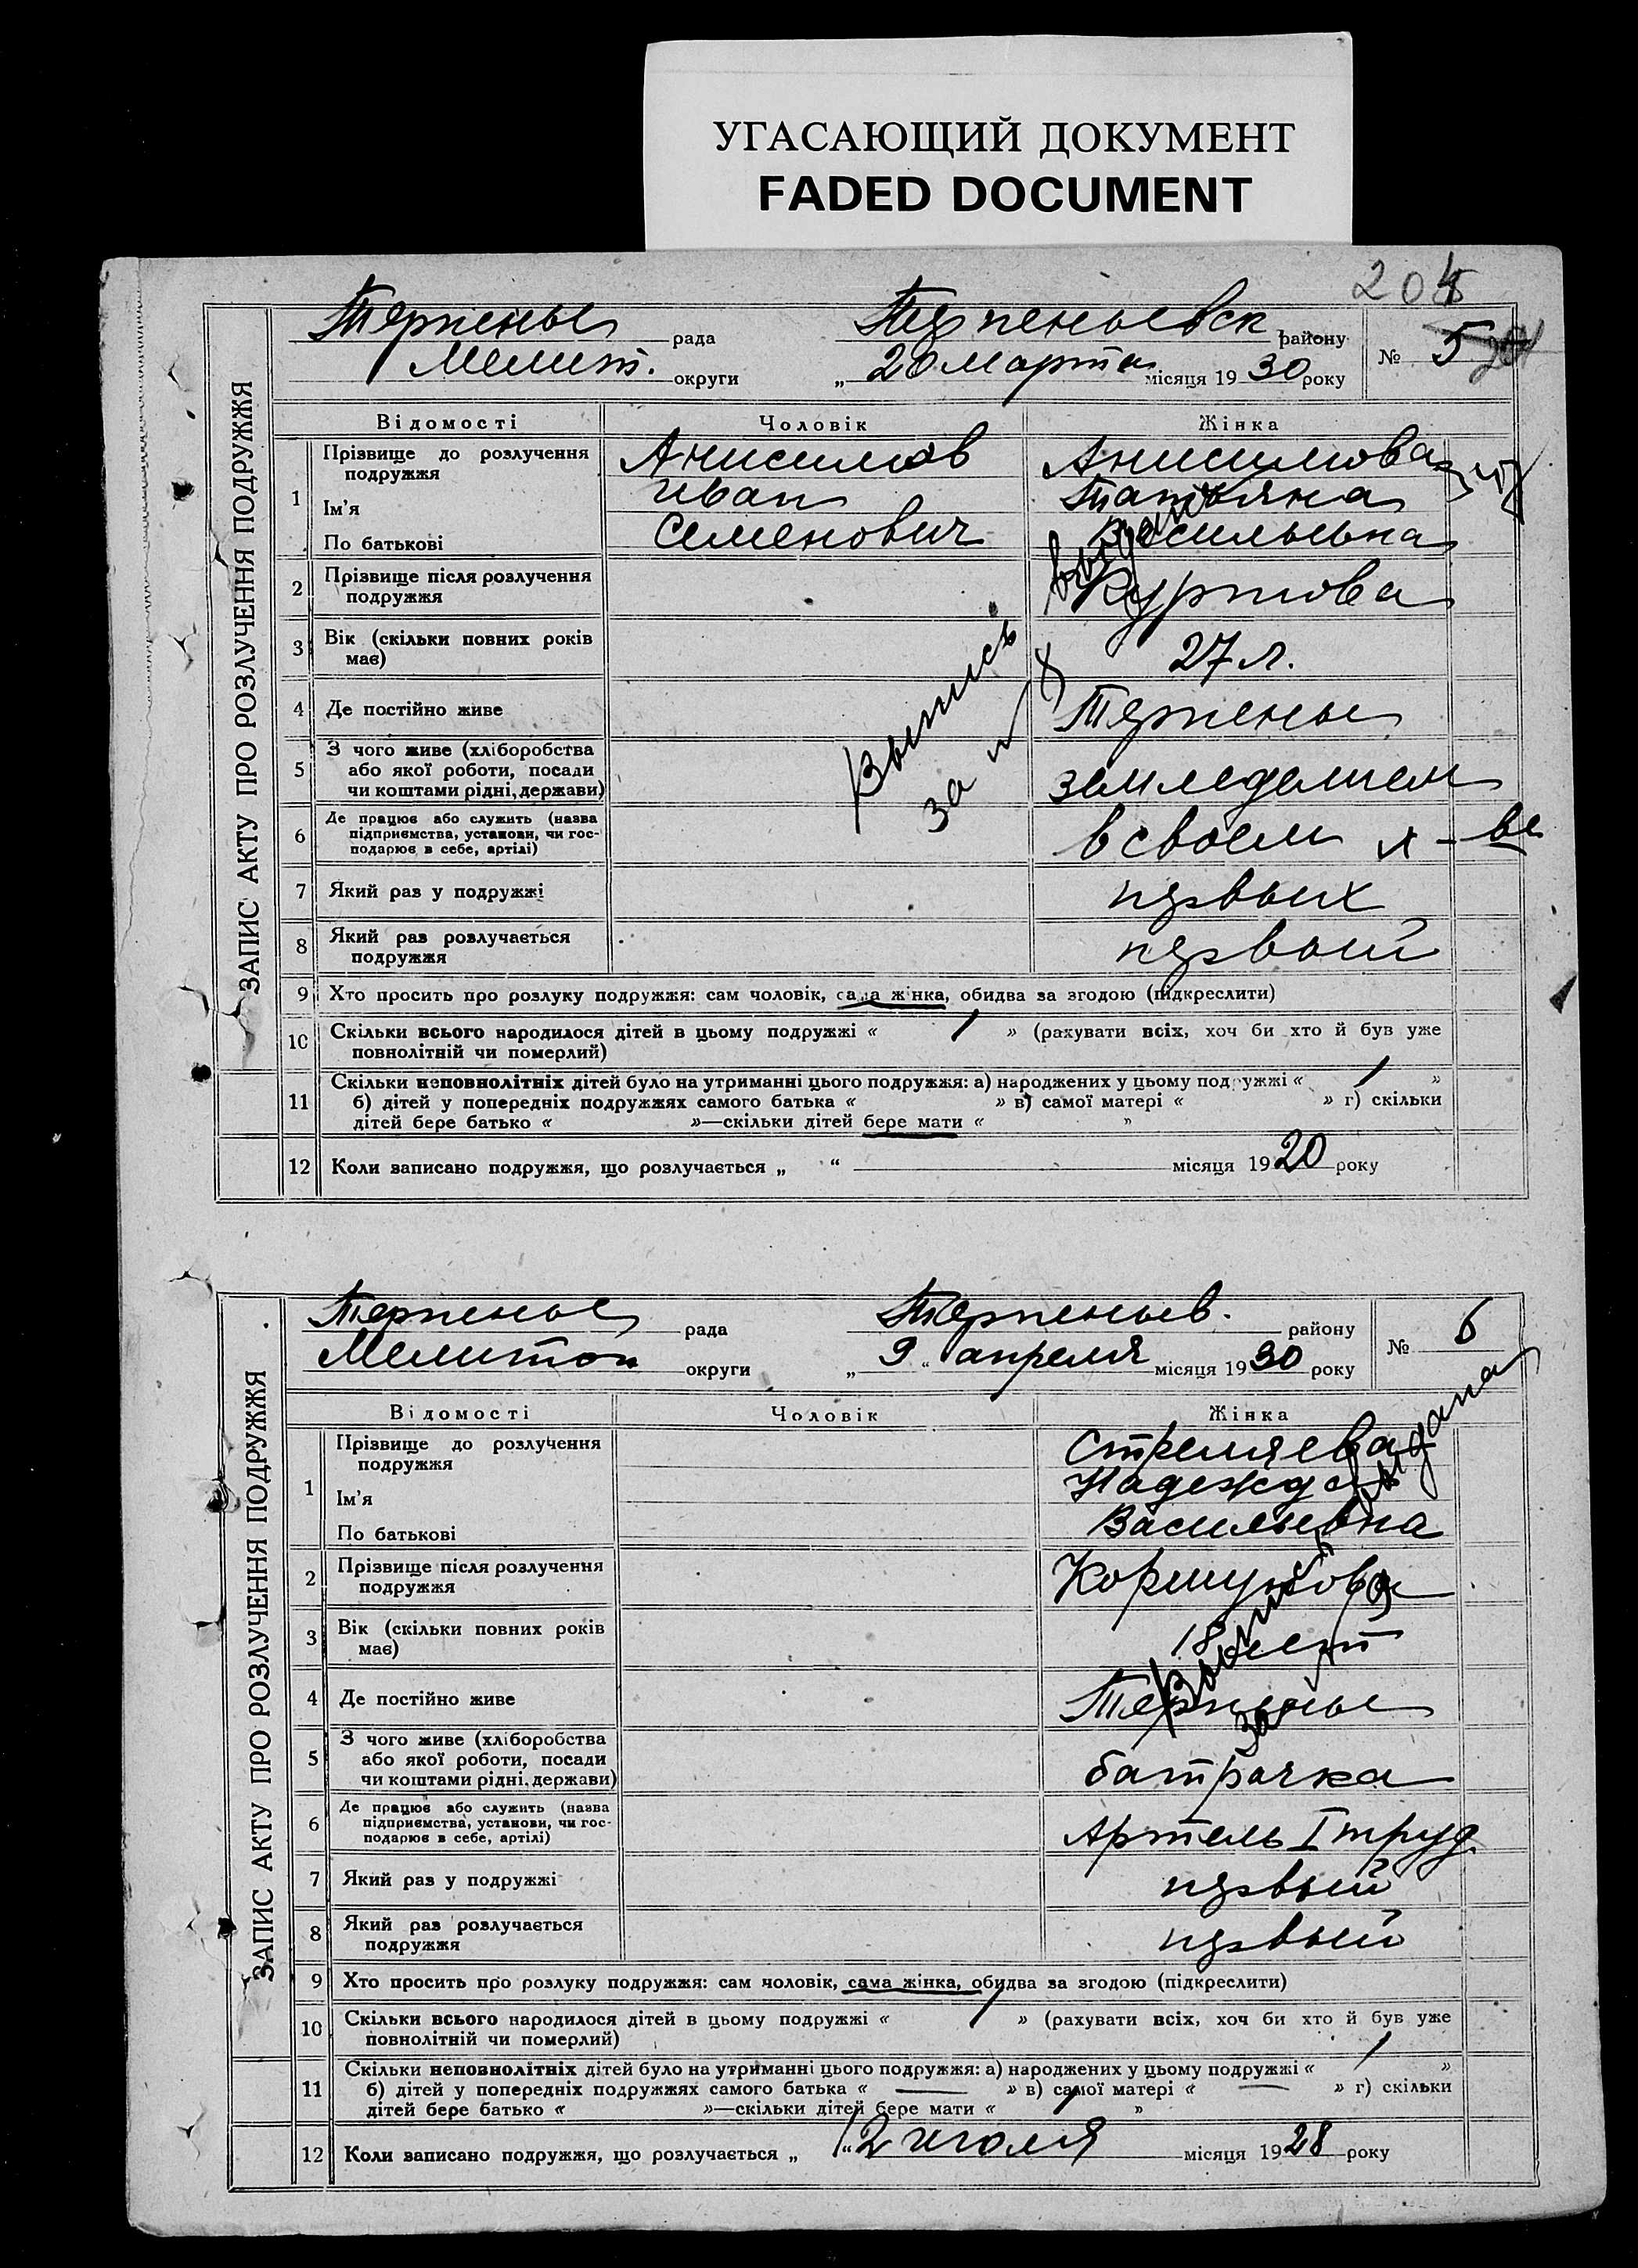 УГАСАЮЩИЙ ДОКУМЕНТ
FADED DOCUMENT
ЗАПИС АКТУ ПРО РОЗЛУЧЕННЯ ПОДРУЖЖЯ
Терпенье рада Терпеньевск району № 5
Мелит. округи „ 20 марта місяця 19 30 року
Відомості Чоловік Жінка
1 Прізвище до розлучення подружжя Анисимов Анисимова
Ім'я Иван Татьяна
По батькові Семенович Васильевна
2 Прізвище після розлучення подружжя Куртова
3 Вік (скільки повних років має) 27 л.
4 Де постійно живе Терпенье
5 З чого живе (хліборобства або якої роботи, посади чи коштами рідні, держави) земледелием
6 Де працює або служить (назва підприємства, установи, чи господарює в себе, артілі) в своем х-ве
7 Який раз у подружжі первых
8 Який раз розлучається подружжя первый
Выпись
за №
9 Хто просить про розлуку подружжя: сам чоловік, сама жінка, обидва за згодою (підкреслити)
10 Скільки всього народилося дітей в цьому подружжі « 1 » (рахувати всіх, хоч би хто й був уже
повнолітній чи померлий)
11 Скільки неповнолітніх дітей було на утриманні цього подружжя: а) народжених у цьому подружжі « 1 »
б) дітей у попередніх подружжях самого батька « » в) самої матері « » г) скільки
дітей бере батько « »—скільки дітей бере мати « »
12 Коли записано подружжя, що розлучається „ “ місяця 19 20 року
ЗАПИС АКТУ ПРО РОЗЛУЧЕННЯ ПОДРУЖЖЯ
Терпенье рада Терпеньев. району № 6
Мелитоп округи „ 9 “ апреля місяця 19 30 року
Відомості Чоловік Жінка
1 Прізвище до розлучення подружжя Стреляева
Ім'я Надежда
По батькові Васильевна
2 Прізвище після розлучення подружжя Коршунова
3 Вік (скільки повних років має) 18 лет
4 Де постійно живе Терпенье
5 З чого живе (хліборобства або якої роботи, посади чи коштами рідні, держави) батрачка
6 Де працює або служить (назва підприємства, установи, чи господарює в себе, артілі) Артель I труд
7 Який раз у подружжі первый
8 Який раз розлучається подружжя первый
Выпись выдана
за № 9
9 Хто просить про розлуку подружжя: сам чоловік, сама жінка, обидва за згодою (підкреслити)
10 Скільки всього народилося дітей в цьому подружжі « 1 » (рахувати всіх, хоч би хто й був уже
повнолітній чи померлий)
11 Скільки неповнолітніх дітей було на утриманні цього подружжя: а) народжених у цьому подружжі « 1 »
б) дітей у попередніх подружжях самого батька « — » в) самої матері « — » г) скільки
дітей бере батько « »—скільки дітей бере мати « 1 »
12 Коли записано подружжя, що розлучається „ 12 “ июля місяця 19 28 року